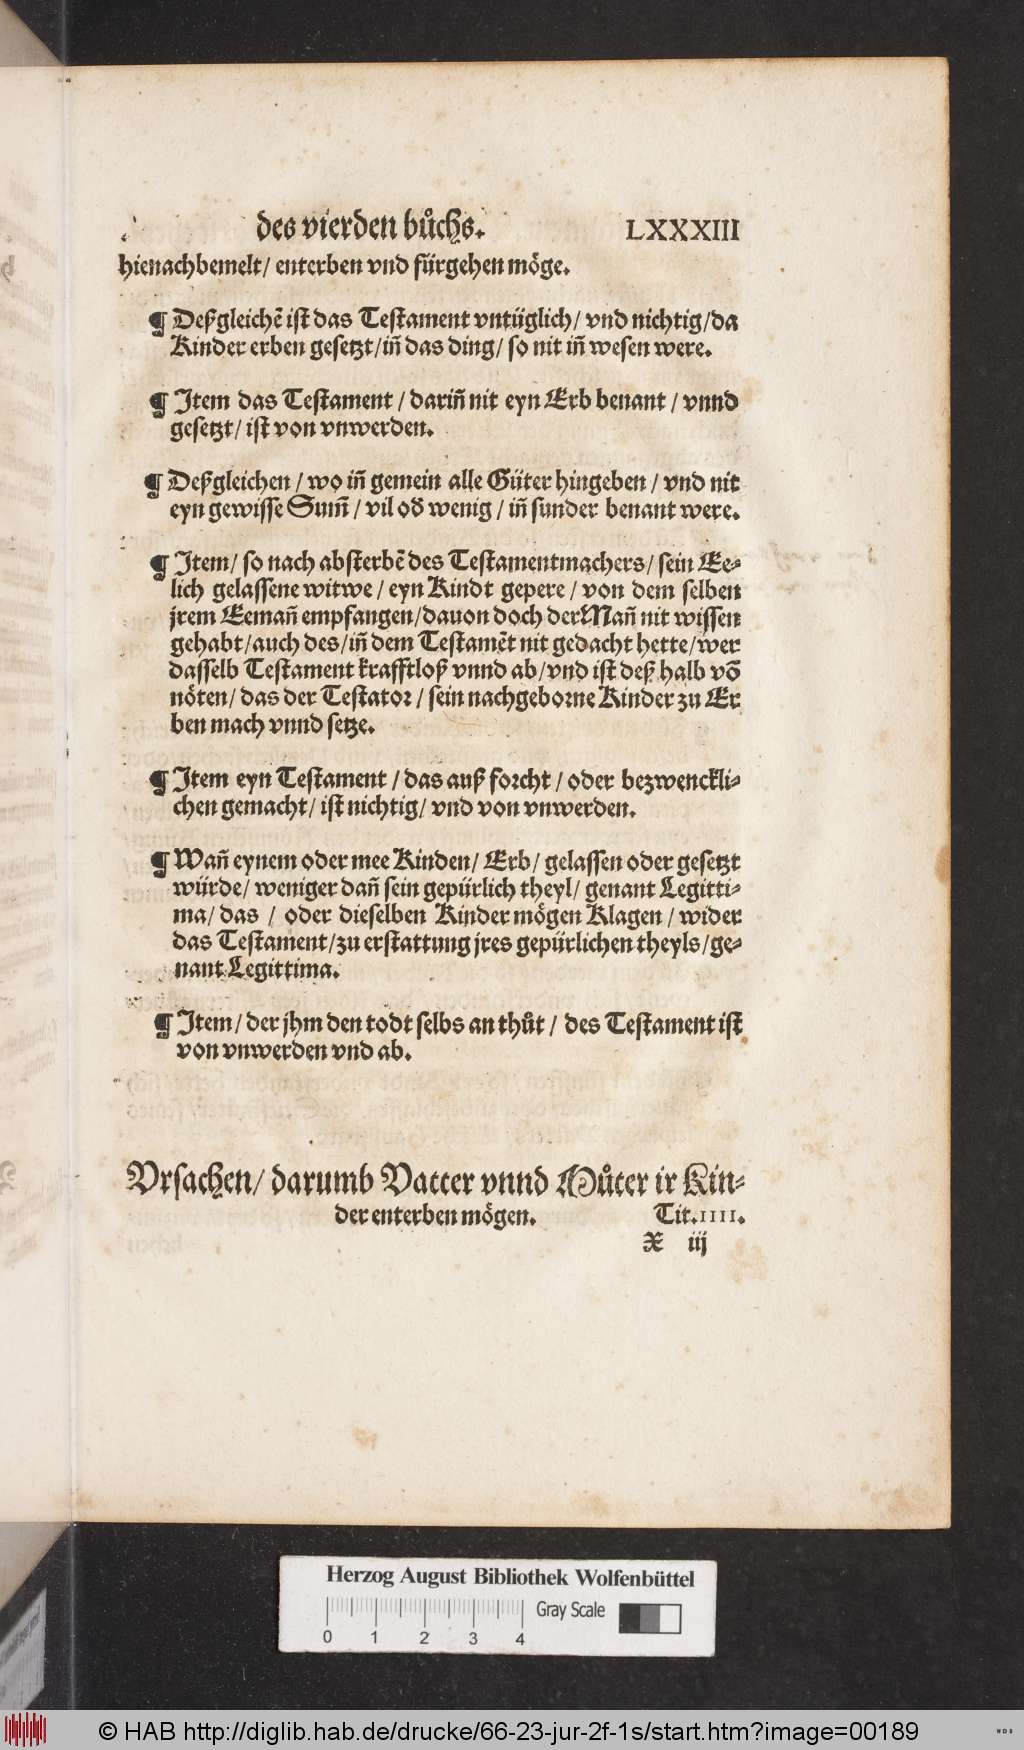 des vierden bůchs. LXXXIII
hienachbemelt/ enterben vnd fürgehen möge.
¶ Deßgleichē ist das Testament vntüglich/ vnd nichtig/da
Kinder erben gesetzt/iñ das ding/ so nit iñ wesen were.
¶ Item das Testament / dariñ nit eyn Erb benant / vnnd
gesetzt/ ist von vnwerden.
¶ Deßgleichen / wo iñ gemein alle Güter hingeben / vnd nit
eyn gewisse Sum̃ / vil oď wenig / iñ sunder benant were.
¶ Item/ so nach absterbē des Testamentmachers/ sein Ee-
lich gelassene witwe / eyn Kindt gepere / von dem selben
jrem Eemañ empfangen/dauon doch der Mañ nit wissen
gehabt/auch des/iñ dem Testamēt nit gedacht hette/wer
dasselb Testament krafftloß vnnd ab/vnd ist deß halb võ
nöten/ das der Testator / sein nachgeborne Kinder zu Er
ben mach vnnd setze.
¶ Item eyn Testament / das auß forcht / oder bezwenckli-
chen gemacht/ ist nichtig/ vnd von vnwerden.
¶ Wañ eynem oder mee Kinden/ Erb/ gelassen oder gesetzt
würde/ weniger dañ sein gepürlich theyl/ genant Legitti-
ma/ das / oder dieselben Kinder mögen Klagen / wider
das Testament/zu erstattung jres gepürlichen theyls/ge-
nant Legittima.
¶ Item/ der jhm den todt selbs an thůt / des Testament ist
von vnwerden vnd ab.
Vrsachen/ darumb Vatter vnnd Můter ir Kin-
der enterben mögen. Tit.IIII.
X iij
Herzog August Bibliothek Wolfenbüttel
Gray Scale
0 1 2 3 4
© HAB http://diglib.hab.de/drucke/66-23-jur-2f-1s/start.htm?image=00189